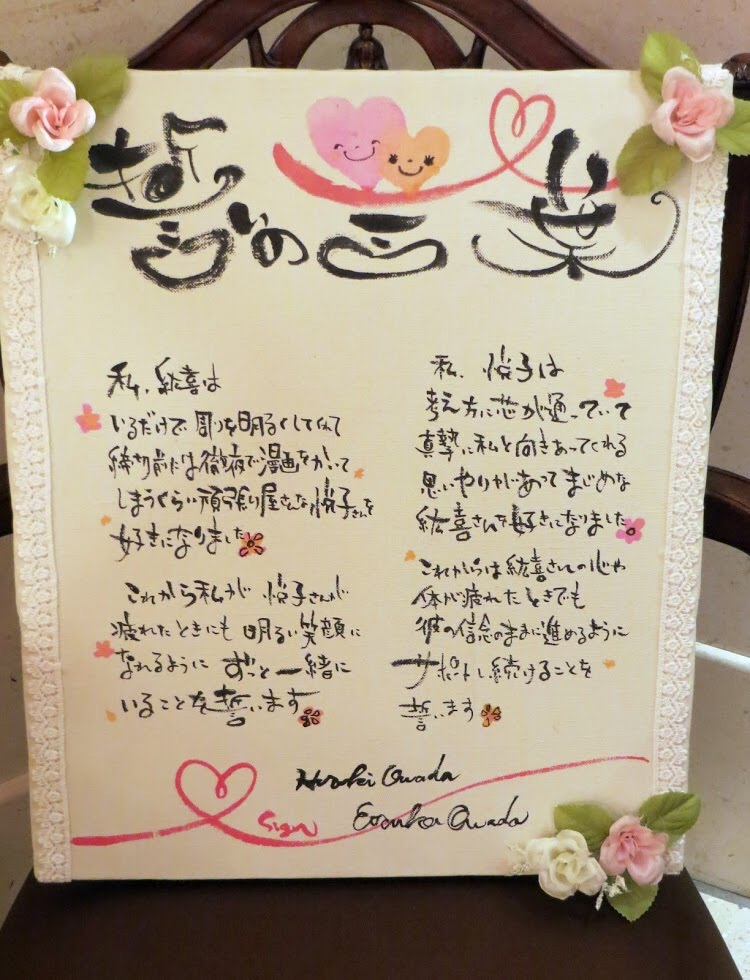 誓いの言葉
私、紘喜は
いるだけで周りを明るくしてくれて
締切前には徹夜で漫画をかいて
しまうぐらい頑張り屋さんな悦子さんを
好きになりました。
これから私が 悦子さんが
疲れたときにも 明るい笑顔に
なれるように ずっと一緒に
いることを誓います
私、悦子は
考え方に芯が通っていて
真摯に私と向きあってくれる
思いやりがあってまじめな
紘喜さんを好きになりました。
これからは紘喜さんの心や
体が疲れたときでも
彼の信念のままに進めるように
サポートし続けることを
誓います
Hiroki Owada
Sign
Owada